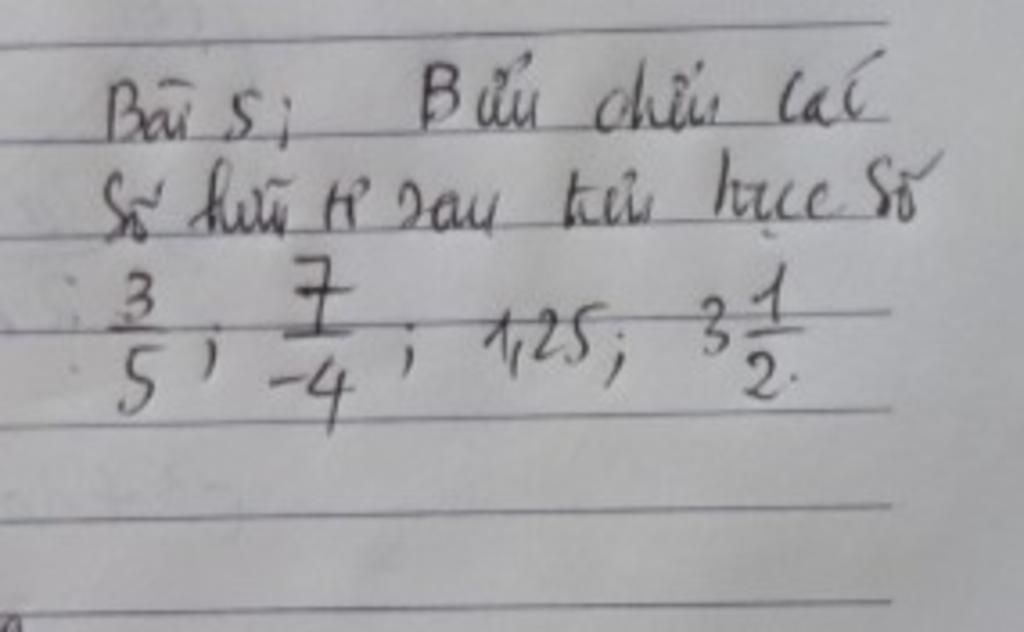 Bài 5; Biểu diễn các
Số hữu tỉ sau trên trục số
3/5 ; 7/-4 ; 1,25; 3 1/2.